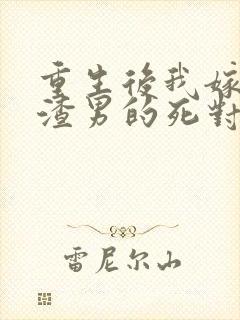 重生後我嫁
渣男的死對
雷尼尔山